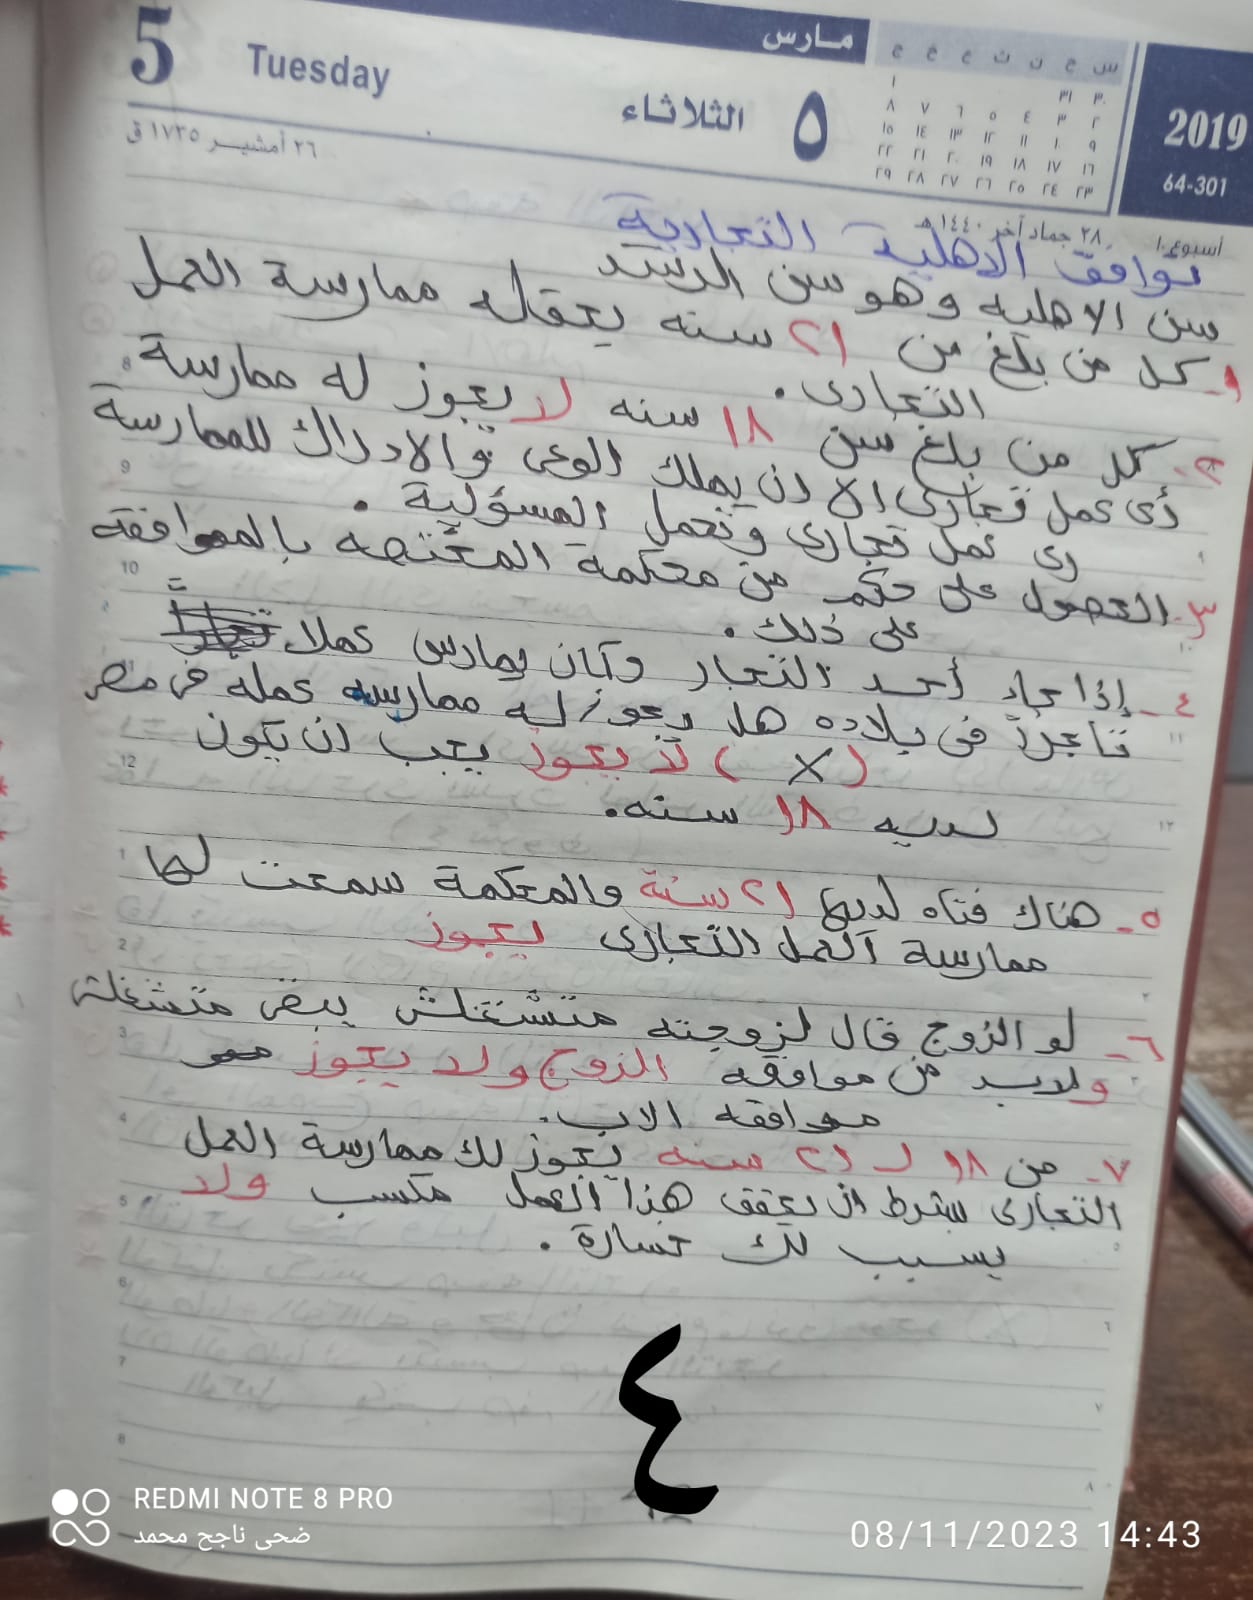 5 Tuesday
مارس
الثلاثاء ٥
س ح ن ث ع خ ج
٣٠ ٣١ ١
٢ ٣ ٤ ٥ ٦ ٧ ٨
٩ ١٠ ١١ ١٢ ١٣ ١٤ ١٥
١٦ ١٧ ١٨ ١٩ ٢٠ ٢١ ٢٢
٢٣ ٢٤ ٢٥ ٢٦ ٢٧ ٢٨ ٢٩
2019
64-301
٢٦ أمشير ١٧٣٥ ق
أسبوع ١٠ ٢٨ جماد آخر ١٤٤٠ هـ
توافق الاهلية التجارية
سن الاهليه وهو سن الرشد
١- كل من بلغ من ٢١ سنه يحقله ممارسة العمل
التجارى.
٢- كل من بلغ سن ١٨ سنه لا يجوز له ممارسة
أى عمل تجارى الا ان يملك الوعى والادراك للممارسة
اى عمل تجارى وتحمل المسؤلية.
٣- الحصول على حكم من محكمة المختصه بالموافقه
على ذلك.
٤- إذا جاء أحد التجار وكان يمارس عملا
تاجراً فى بلاده هل يجوز له ممارسه عمله فى مصر
(X) لا يجوز يجب ان يكون
لديه ١٨ سنه.
٥- هناك فتاه لديها ٢١ سنة والمحكمة سمحت لها
ممارسة العمل التجارى يجوز
٦- لو الزوج قال لزوجته متشتغلش يبقى متشتغلش
ولابد من موافقه الزوج ولا يجوز
موافقه الاب.
٧- من ١٨ لـ ٢١ سنه يجوز لك ممارسة العمل
التجارى بشرط ان يحقق هذا العمل مكسب ولا
يسبب لك خسارة.
٤
8
9
10
11
12
1
2
3
4
5
6
7
8
REDMI NOTE 8 PRO
ضحى ناجح محمد
08/11/2023 14:43